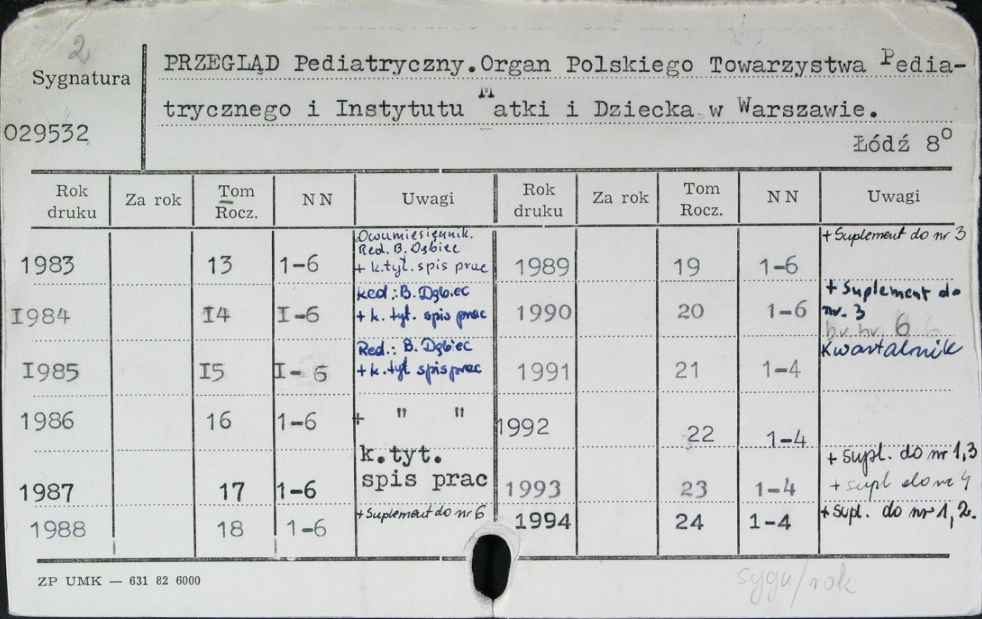 2
Sygnatura
029532
PRZEGLĄD Pediatryczny.Organ Polskiego Towarzystwa Pedia-
trycznego i Instytutu Matki i Dziecka w Warszawie.
Łódź 8⁰
Rok druku Za rok Tom Rocz. NN Uwagi Rok druku Za rok Tom Rocz. NN Uwagi
1983 13 1-6 Dwumiesięcznik.
Red. B. Dębiec
+ k.tyt. spis prac
1989 19 1-6 + Suplement do nr 3
I984 I4 I-6 Red.: B. Dębiec
+ k. tyt. spis prac
1990 20 1-6 + Suplement do
nr. 3
6
I985 I5 I-6 Red.: B. Dębiec
+ k. tyt. spis prac
1991 21 1-4 Kwartalnik
1986 16 1-6 + " "
1992 22 1-4
1987 17 1-6 k.tyt.
spis prac
1993 23 1-4 + supl. do nr 1,3
+ supl do nr 4
1988 18 1-6 + Suplement do nr 6
1994 24 1-4 + Supl. do nr 1, 2.
ZP UMK — 631 82 6000
sygn/rok